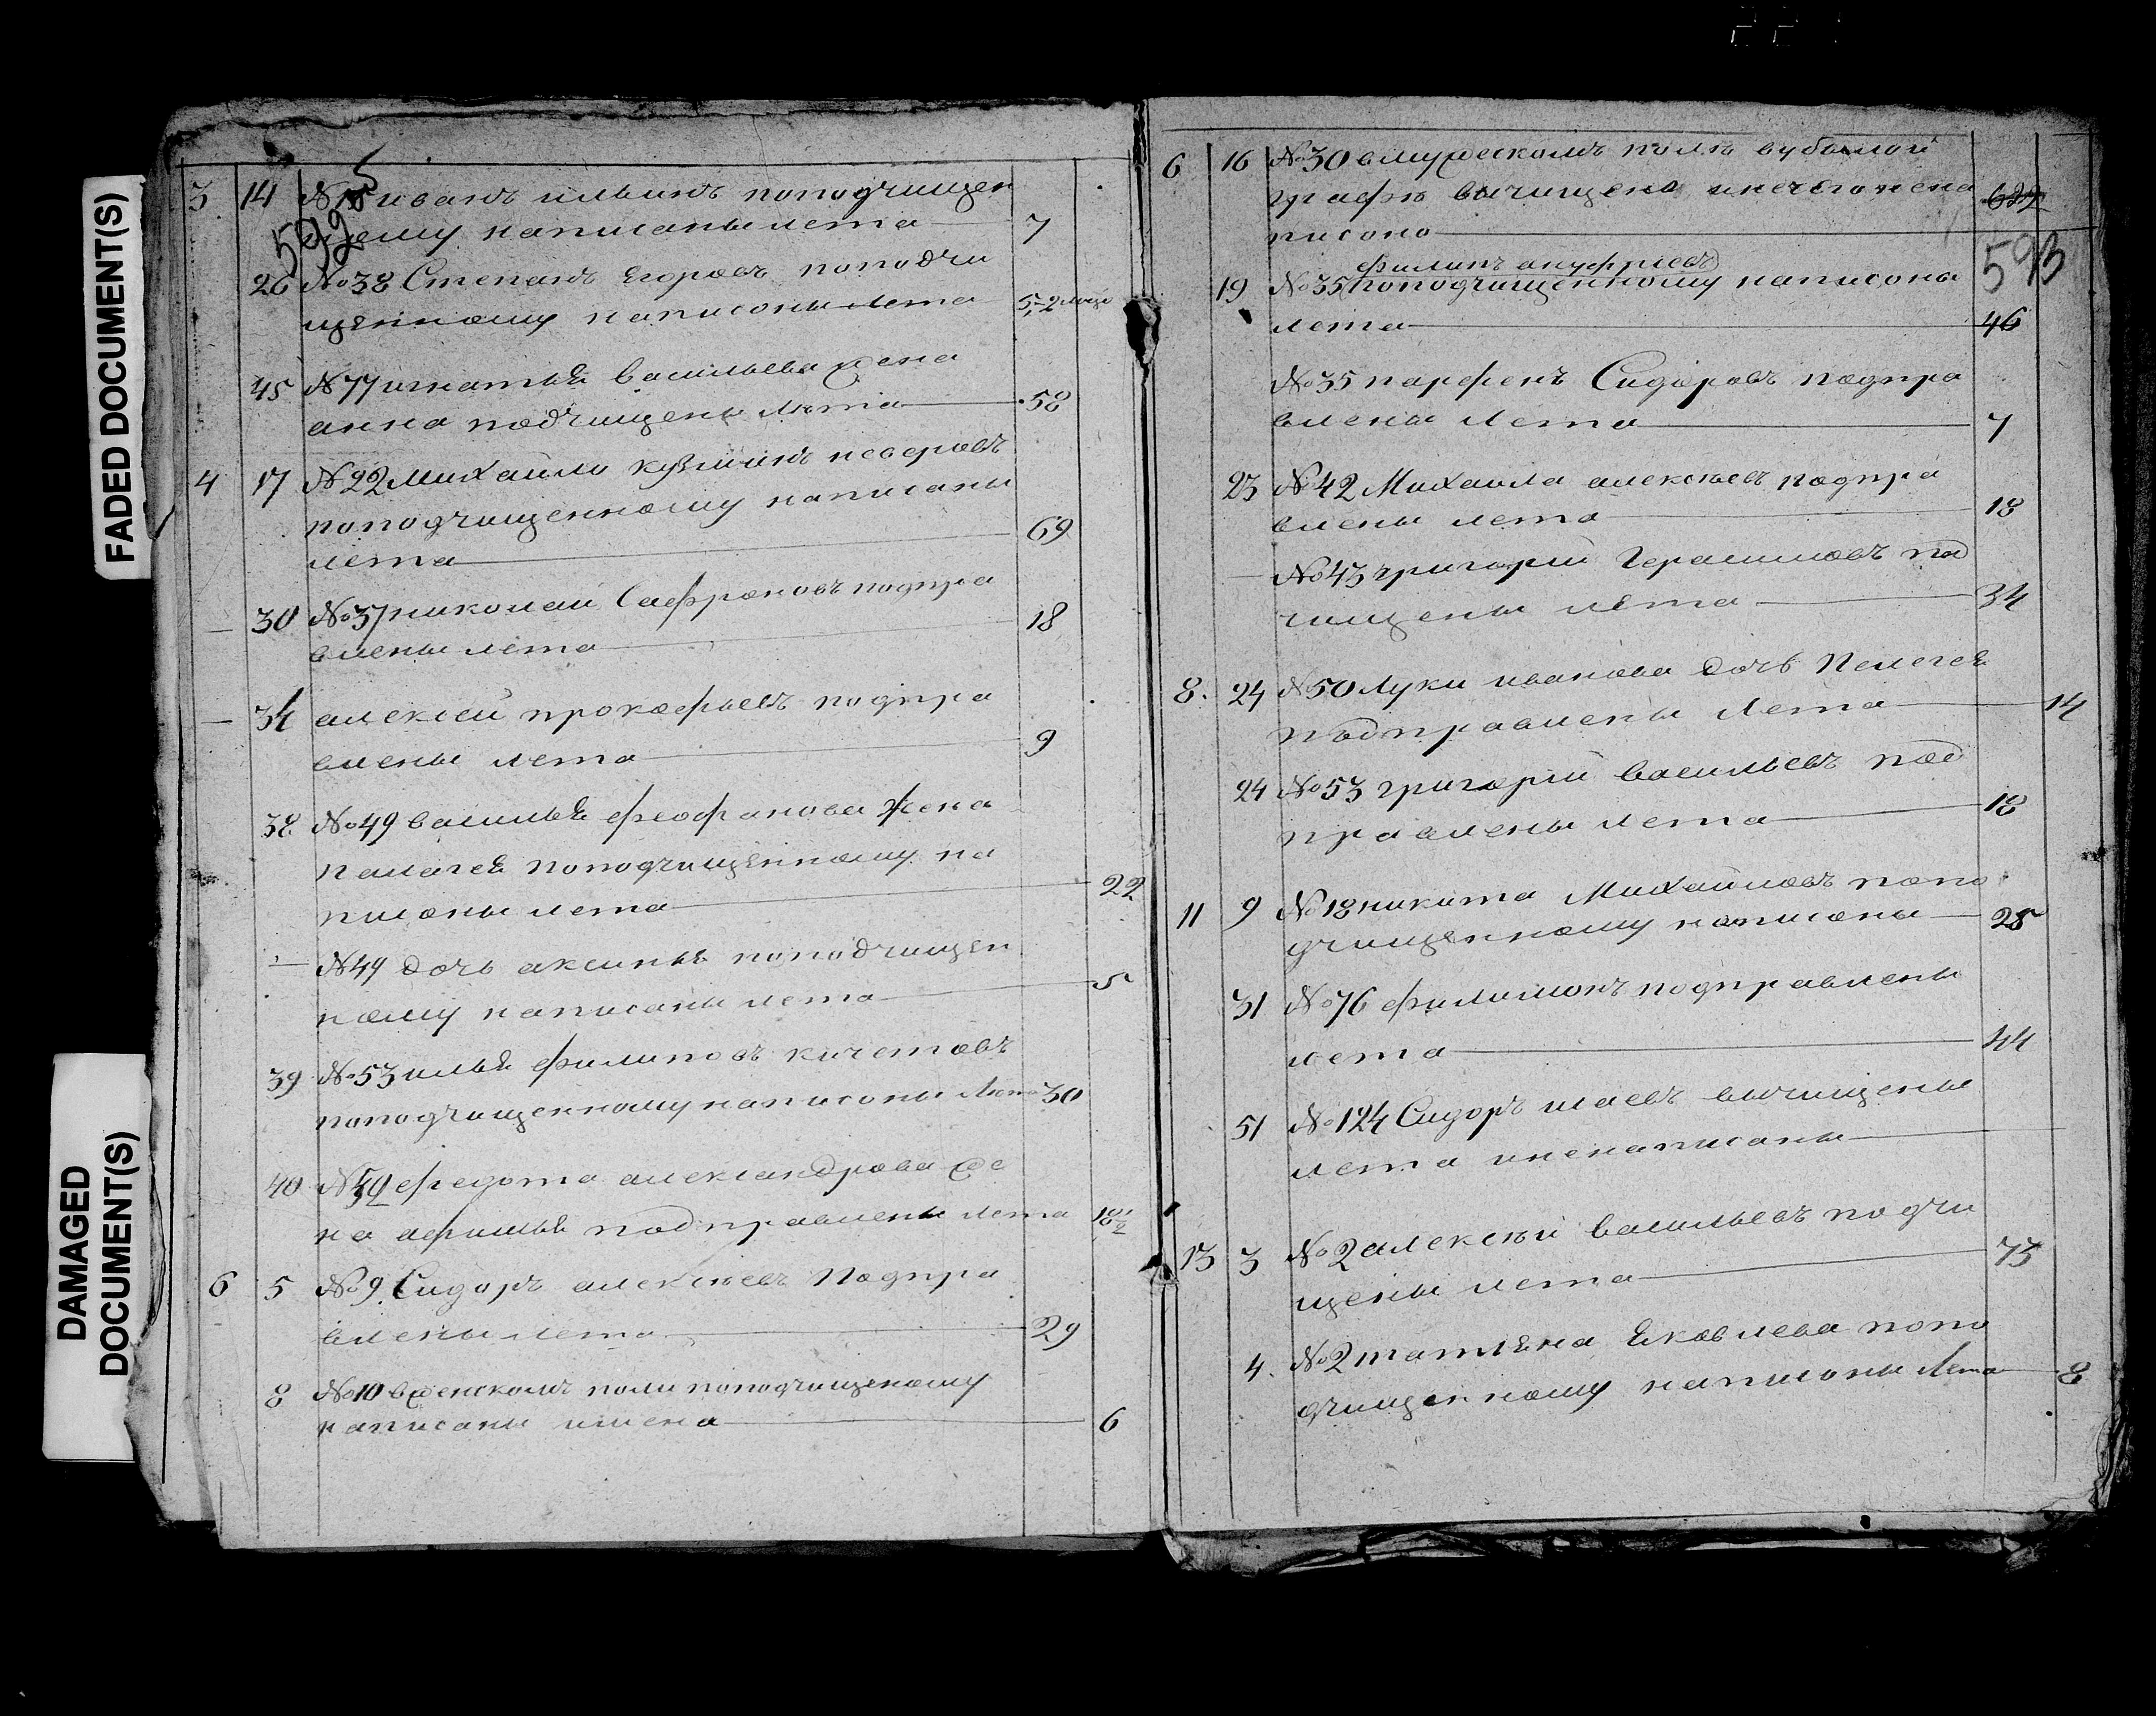 FADED DOCUMENT(S)
DAMAGED
DOCUMENT(S)
592
3 14 №15 иванъ ильинъ поподчищен
ному написаны лета 7
26 №38 Степанъ Егоровъ поподчи
щенному написаны лета 5,2 меся
45 №77 игнатья васильева жена
анна подчищены лета 58
4 17 №22 Михайли кузминъ неворовъ
поподчищенному написаны
лета 69
30 №37 николай Сафроновъ подпра
влены лета 18
— 34 алексей прокофьевъ подпра
влены лета 9
38 №49 василья феофанова жена
палагея поподчищенному на
писаны лета 22
— №49 дочь аксинья поподчищен
ному написаны лета 5
39 №53 илья филиповъ кичетовъ
поподчищенному написоны лета 30
40 федота александрова же
на афимья подправлены лета 18½
6 5 №9 Сидоръ алексеевъ подпра
влены лета 29
8 №10 вженскомъ поли поподчищеному
написаны имена 6
6 16 №30 вмужескомъ полѣ вубылой
графѣ вычищено иничегонена
писоно
593
филипъ ануфриевъ
19 №35 поподчищенному написоны
лета 46
№35 парфенъ Сидоровъ подпра
влены лета 7
23 №42 Михаила алексѣевъ подпра
влены лета 18
— №43 григорій Герасимовъ под
чищены лета 34
8. 24 №50 Луки иванова дочь Пелагея
подправлены лета 14
24 №53 григорій васильевъ под
правлены лета 18
11 9 №18 никита Михайловъ попо
дчищенному написаны 28
31 №76 филимонъ подправлены
лета 44
51 №124 Сидоръ исаевъ вычищены
лета иненаписаны
13 3 №2 алексѣй васильевъ подчи
щены лета 73
4. №2 татьяна Яковлева попо
дчищенному написоны лета 8